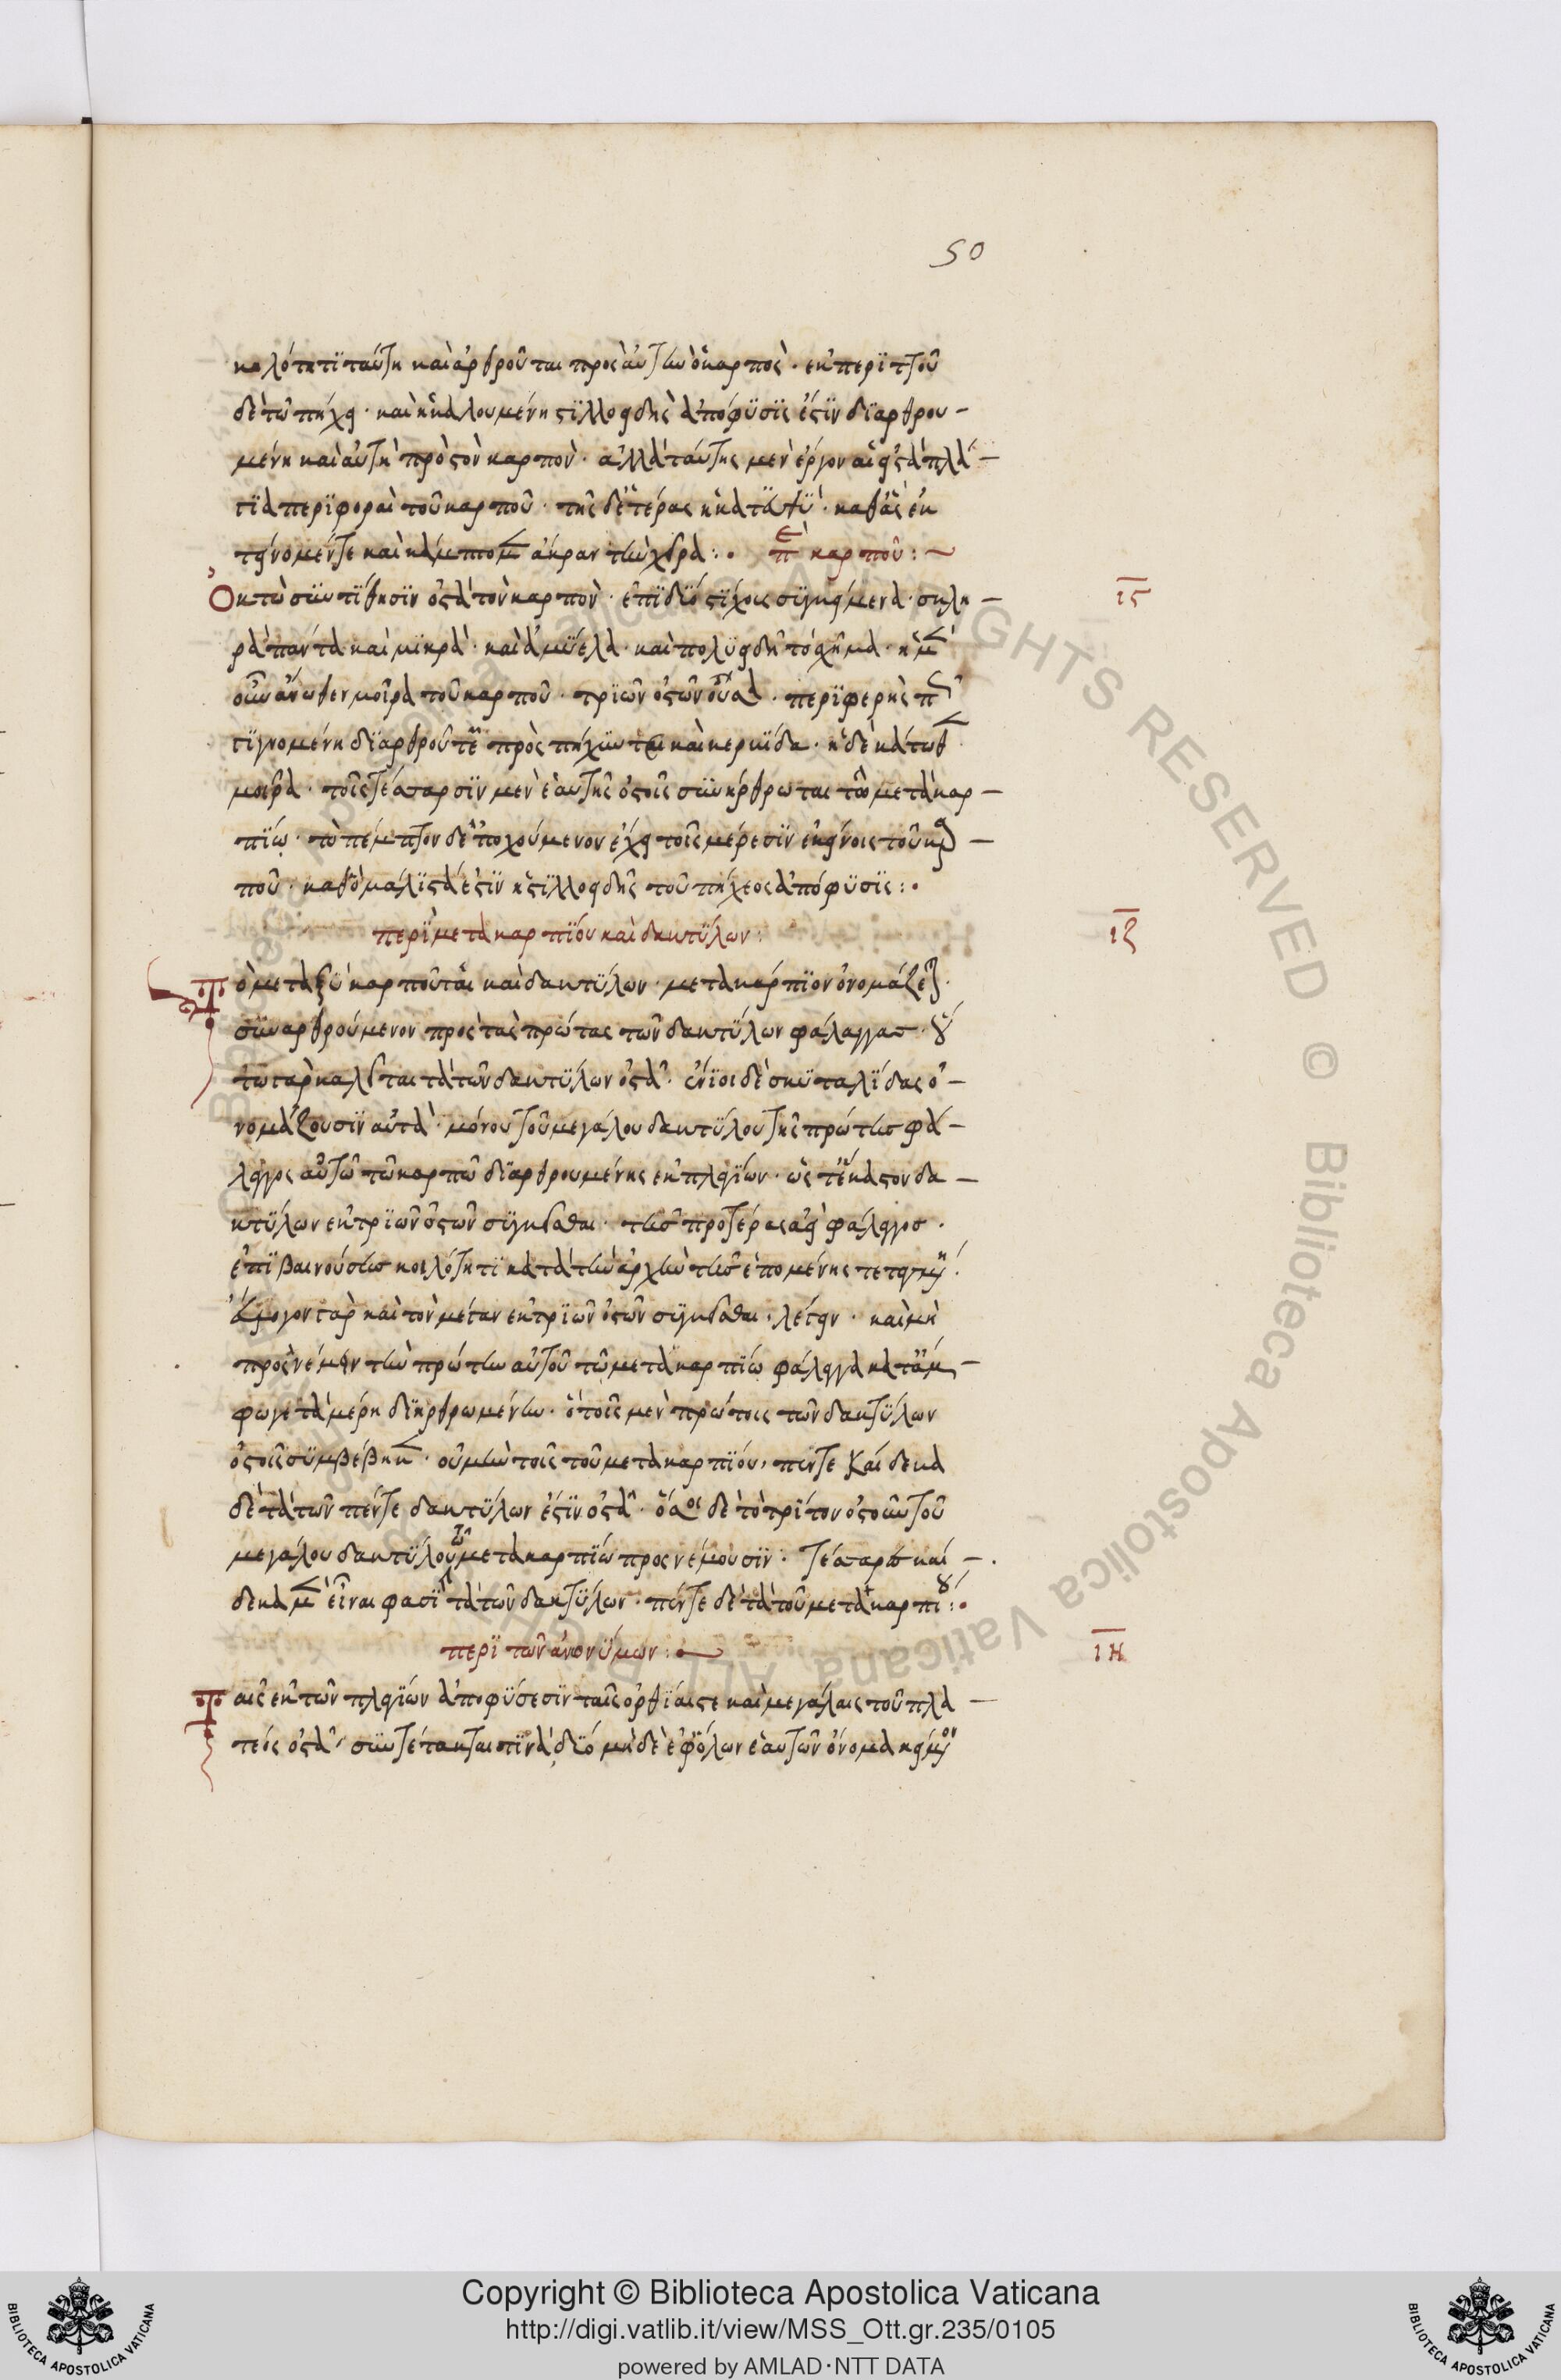 50
κοιλότητι ταύτη καὶ ἀρθροῦται πρὸς αὐτὴν ὁ καρπός· ἐκ περιττοῦ
δὲ τῶ πήχει· καὶ ἡ καλουμένη στιλοειδὴς ἀπόφυσίς ἐστιν διαρθρου-
μένη καὶ αὐτὴ πρὸς τὸν καρπόν· ἀλλὰ ταύτης μὲν ἔργον αἱ εἰς τὰ πλά-
για περιφοραὶ τοῦ καρποῦ· τῆς δ' ἑτέρας ἡ κατ' εὐθύ· καθ' ἃς ἐκ
τείνομέν τε καὶ κάμπτομεν ἄκραν τὴν χεῖρα:· περὶ καρποῦ:~
Ὀκτὼ συντίθησιν ὀστᾶ τὸν καρπόν· ἐπὶ δύο στίχοις συγκείμενα· σκλη-
ις
ρὰ πάντα καὶ μικρά· καὶ ἀμύελα· καὶ πολυειδῆ τὸ σχῆμα· ἡ μὲν
οὖν ἄνωθεν μοῖρα τοῦ καρποῦ· τριῶν ὀστῶν οὖσα· περιφερὴς
γιγνομένη διαρθροῦται πρὸς πῆχυν τε καὶ κερκίδα· ἡ δὲ κάτωθεν
μοῖρα· τοῖς τέσσαρσιν μὲν ἑαυτῆς ὀστοῖς συνήρθρωται τῶ μετακαρ-
πίω· τὸ πέμπτον δὲ ἐποχούμενον ἔχει τοῖς μέρεσιν ἐκείνοις τοῦ καρ-
ποῦ· καθ' ὃ μάλιστά ἐστιν ἡ στιλοειδὴς τοῦ πήχεος ἀπόφυσις:·
περὶ μετακαρπίου καὶ δακτύλων:
ιζ
Τὸ μεταξὺ καρποῦ τε καὶ δακτύλων· μετακάρπιον ὀνομάζεται·
συναρθρούμενον πρὸς τὰς πρώτας τῶν δακτύλων φάλαγγας· οὕ
τω γὰρ καλεῖται τὰ τῶν δακτύλων ὀστᾶ· ἔνιοι δὲ σκυταλίδας ὀ-
νομάζουσιν αὐτά· μόνου τοῦ μεγάλου δακτύλου τῆς πρώτης φά-
λαγγος αὐτῶ τῶ καρπῶ διαρθρουμένης ἐκ πλαγίων· ὥστε ἕκαστον δα-
κτύλων ἐκ τριῶν ὀστῶν συγκεῖσθαι· τῆς προτέρας ἀεὶ φάλαγγος·
ἐπιβαινούσης κοιλότητι κατὰ τὴν ἀρχὴν τῆς ἑπομένης τεταγμένη·
ἄμεινον γὰρ καὶ τὸν μέγαν ἐκ τριῶν ὀστῶν συγκεῖσθαι λέγειν· καὶ μὴ
προσνέμειν τὴν πρώτην αὐτοῦ τῶ μετακαρπίω φάλαγγα κατ' ἄμ-
φω γε τὰ μέρη διηρθρωμένην· ὃ τοῖς μὲν πρώτοις τῶν δακτύλων
ὀστοῖς συμβέβηκεν· οὐ μὴν τοῖς τοῦ μετακαρπίου· πέντε καίδεκα
δὲ τὰ τῶν πέντε δακτύλων ἐστὶν ὀστᾶ· ὅσοι δὲ τὸ τρίτον ὀστοῦν τοῦ
μεγάλου δακτύλου τῶ μετακαρπίω προσνέμουσιν· τέσσαρας καί-
δεκα μὲν εἶναι φασὶ τὰ τῶν δακτύλων· πέντε δὲ τὰ τοῦ μετακαρπίου:·
περὶ τῶν ἀνωνύμων:·
ιη
Ταῖς ἐκ τῶν πλαγίων ἀποφύσεσιν ταῖς ὀρθίαις τε καὶ μεγάλαις τοῦ πλα-
τέος ὀστᾶ συντέτακται τινὰ, διὸ μηδὲ ἐφ' ὅλων ἑαυτῶν ὄνομα κείμενον
Copyright © Biblioteca Apostolica Vaticana
http://digi.vatlib.it/view/MSS_Ott.gr.235/0105
powered by AMLAD·NTT DATA